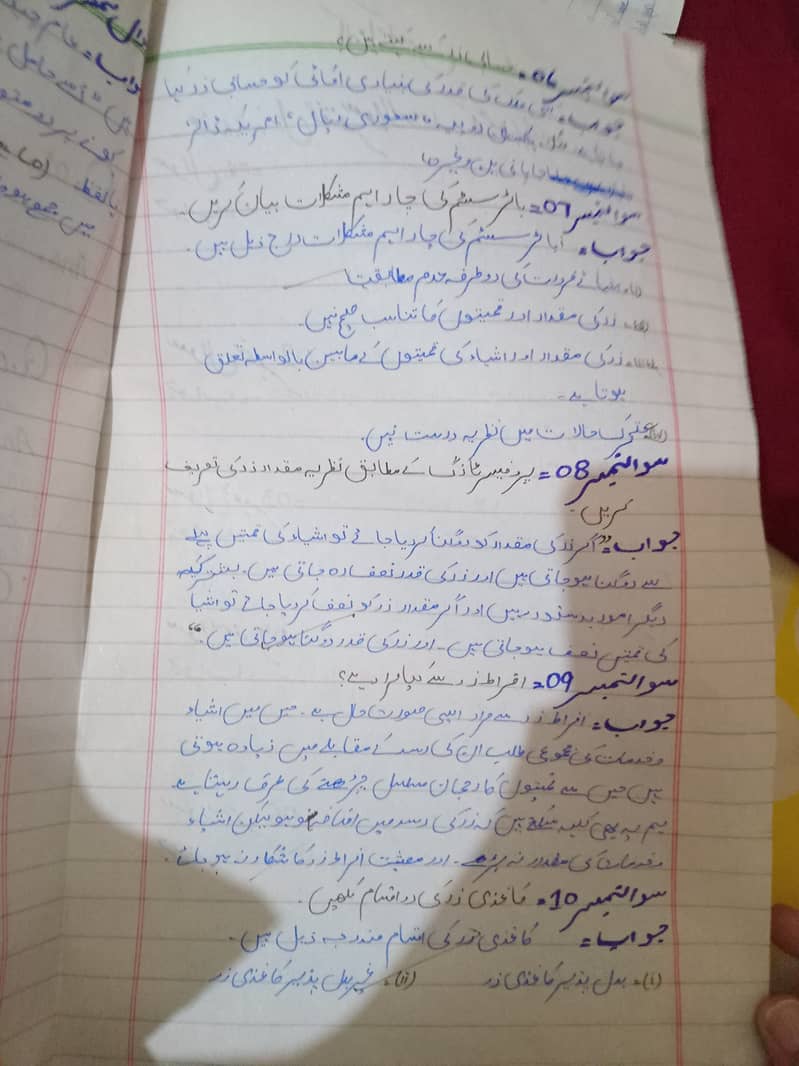 سوال نمبر 06 = حسابی زر سے کیا مراد ہے؟
جواب = کسی ملک کی قدر کی بنیادی اکائی کو حسابی زر کہا
جاتا ہے۔ مثلاً پاکستانی روپیہ، سعودی ریال، امریکہ ڈالر
جاپانی ین وغیرہ
سوال نمبر 07 = بارٹر سسٹم کی چار اہم مشکلات بیان کریں۔
جواب = بارٹر سسٹم کی چار اہم مشکلات درج ذیل ہیں۔
(i) ضروریات کی دو طرفہ عدم مطابقت
(ii) زر کی مقدار اور قمیتوں کا تناسب صیح نہیں۔
(iii) زر کی مقدار اور اشیاء کی قمیتوں کے مابین بالواسطہ تعلق
ہوتا ہے۔
(iv) حالات میں نظریہ درست نہیں۔
سوال نمبر 08 = پروفیسر ٹازگ کے مطابق نظریہ مقدار زر کی تعریف
کریں۔
جواب = "اگر زر کی مقدار کو دگنا کر دیا جائے تو اشیاء کی قمتیں پہلے
سے دگنا ہو جاتی ہیں اور زر کی قدر نصف رہ جاتی ہیں۔ بشرطیکہ
دیگر امور بدستور رہیں اور اگر مقدار زر کو نصف کر دیا جائے تو اشیا
کی قمتیں نصف ہو جاتی ہیں۔ اور زر کی قدر دوگنا ہو جاتی ہیں۔"
سوال نمبر 09 = افراط زر سے کیا مراد ہے؟
جواب = افراط زر سے مراد ایسی صورت حال ہے۔ جس میں اشیاء
و خدمات کی مجموعی طلب ان کی رسد کے مقابلے میں زیادہ ہوتی
ہیں جس سے قمیتوں کا رجحان مسلسل چڑھنے کی طرف رہتا ہے۔
ہم یہ بھی کہہ سکتے ہیں کہ زر کی رسد میں اضافہ تو ہو لیکن اشیاء
و خدمات کی مقدار نہ بڑھے۔ اور معیشت افراط زر کا شکار نہ ہو جائے۔
سوال نمبر 10 = کاغذی زر کی دو اقسام لکھیں۔
جواب = کاغذی زر کی اقسام مندرجہ ذیل ہیں۔
(i) = بدل پذیر کاغذی زر (ii) = غیر بدل پذیر کاغذی زر